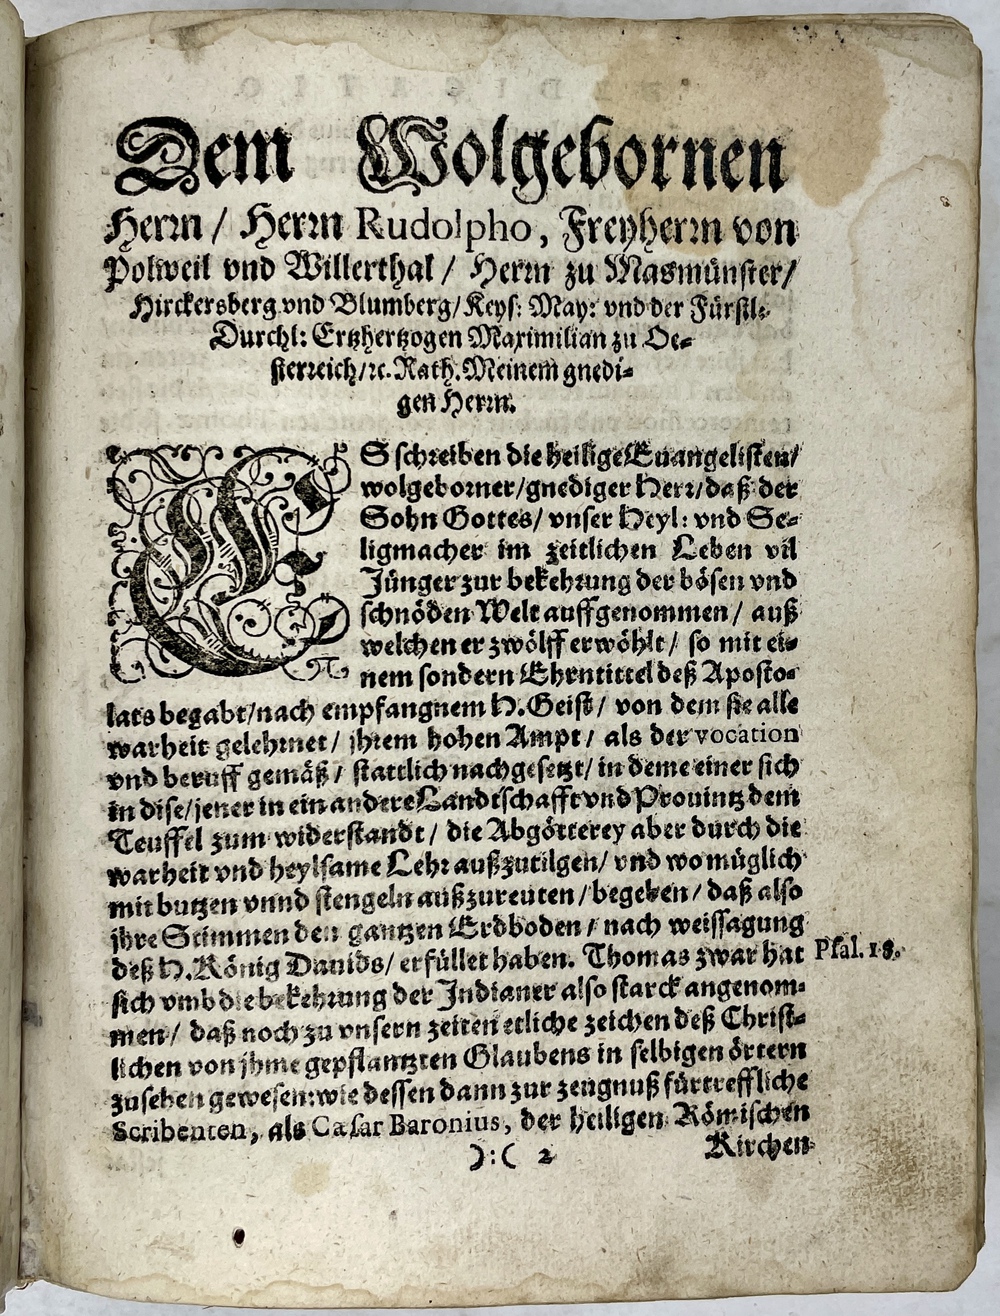 Dem Wolgebornen
Herrn / Herrn Rudolpho, Freyherrn von
Polweil vnd Willerthal / Herrn zu Masmünster /
Hirckersberg vnd Blumberg / Keys: May: vnd der Fürstl:
Durchl: Ertzhertzogen Maximilian zu Oe-
sterreich / ꝛc. Rath. Meinem gnedi-
gen Herrn.
ES schreiben die heilige Euangelisten /
wolgeborner / gnediger Herr / daß der
Sohn Gottes / vnser Heyl: vnd Se-
ligmacher im zeitlichen Leben vil
Jünger zur bekehrung der bösen vnd
schnöden Welt auffgenommen / auß
welchen er zwölff erwöhlt / so mit ei-
nem sondern Ehrntittel deß Aposto-
lats begabt / nach empfangnem H. Geist / von dem sie alle
warheit gelehrnet / jhrem hohen Ampt / als der vocation
vnd beruff gemäß / stattlich nachgesetzt / in deme einer sich
in dise / jener in ein andere Landtschafft vnd Prouintz dem
Teuffel zum widerstandt / die Abgötterey aber durch die
warheit vnd heylsame Lehr außzutilgen / vnd wo müglich
mit butzen vnnd stengeln außzureuten / begeben / daß also
jhre Stimmen den gantzen Erdboden / nach weissagung
deß H. König Dauids / erfüllet haben. Thomas zwar hat
Psal. 18.
sich vmb die bekehrung der Indianer also starck angenom-
men / daß noch zu vnsern zeiten etliche zeichen deß Christ-
lichen von jhme gepflantzten Glaubens in selbigen örtern
zusehen gewesen: wie dessen dann zur zeugnuß fürtreffliche
Scribenten, als Cæsar Baronius, der heiligen Römischen
):( 2
Kirchen